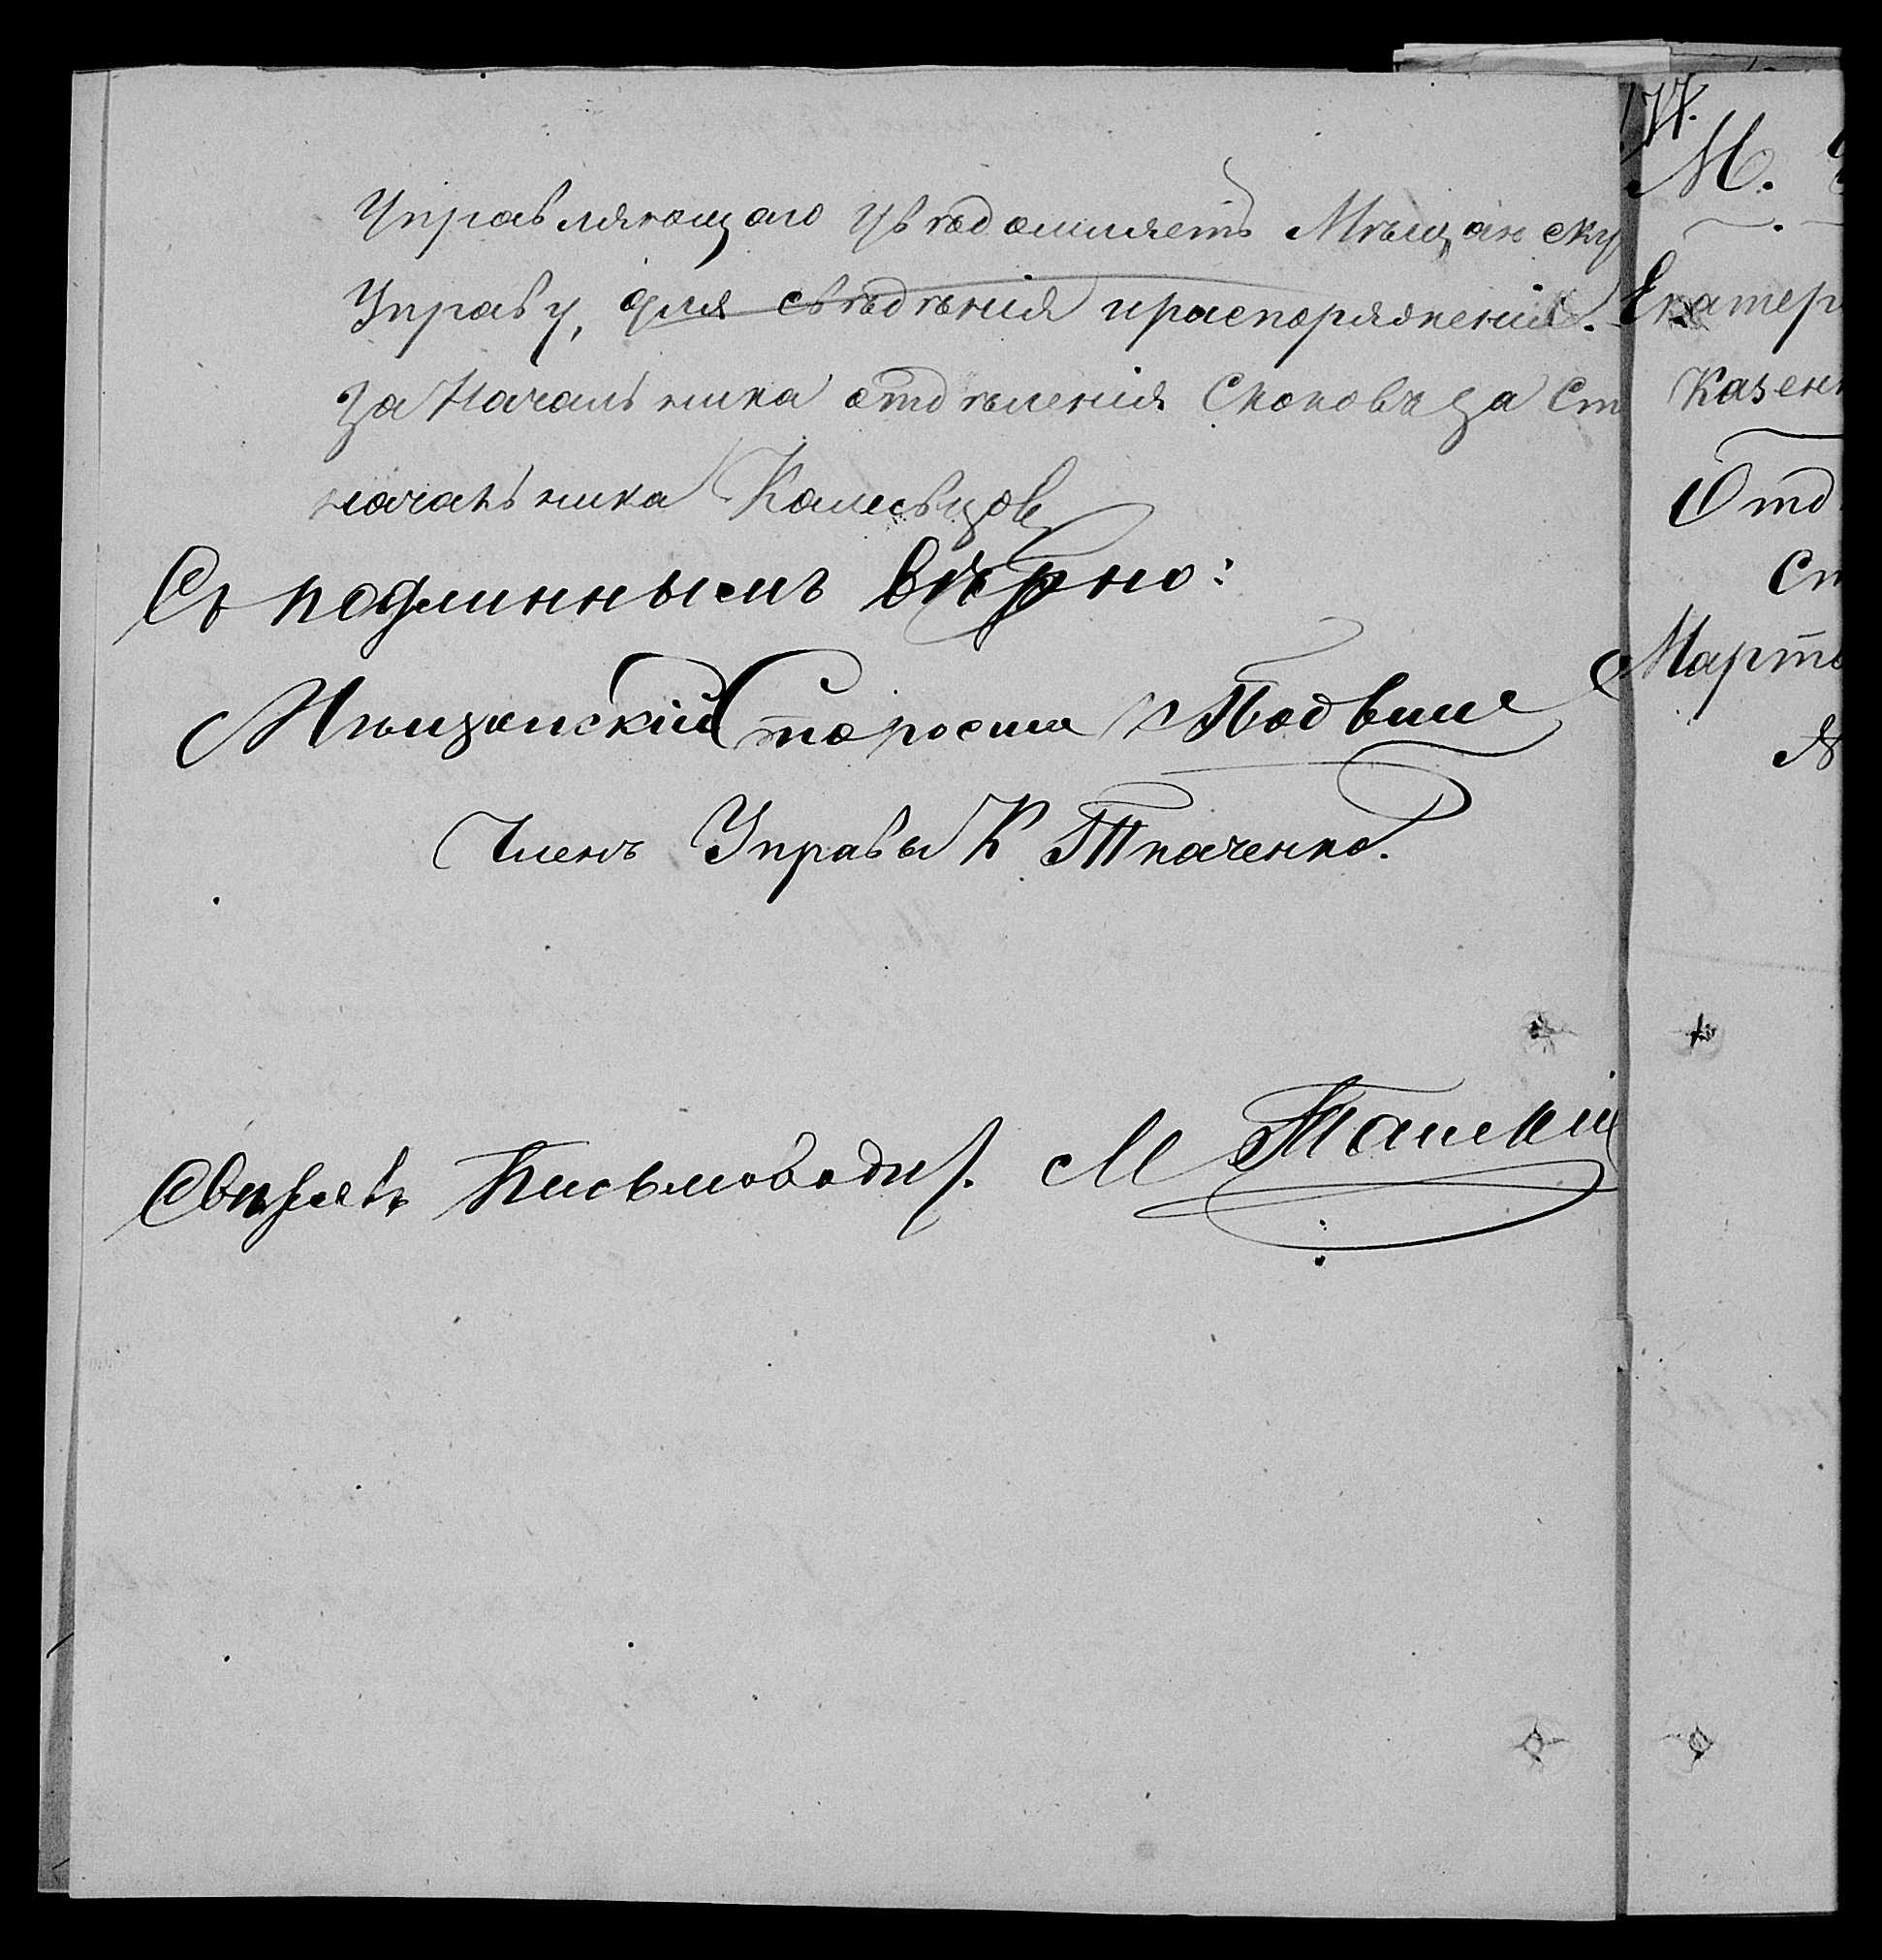 Управляющаго увѣдомляетъ Мѣщанску
Управу, для свѣдѣнія и распоряженія.
За Начальника отдѣленія Скоковъ за Ст
начальника
Съ подлиннымъ вѣрно:
Мѣщанскій Староста
Членъ Управы К Ткаченко.
Свѣрялъ Письмоводит. М
М.
Екатер
Казен
Отд
Ст
Марта
№